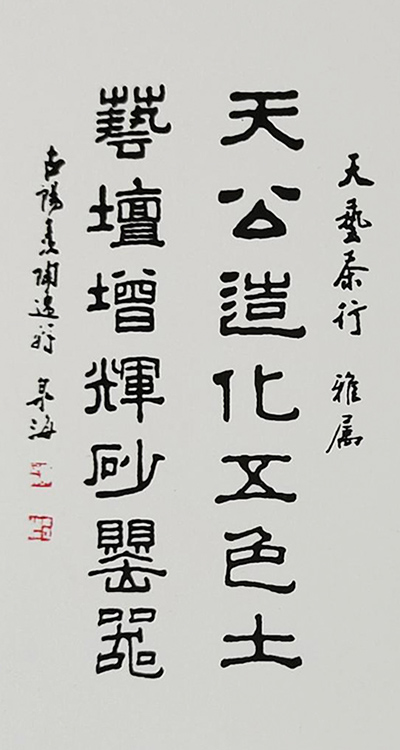 天藝泰行 雅属
天公造化五色土
藝壇增輝砂罌器
古陽羨陶逸軒 海